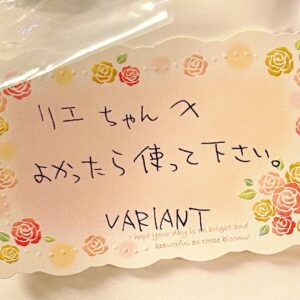 リエちゃんへ
よかったら使って下さい。
VARIANT
I hope your day is as bright and
beautiful as these blooms!